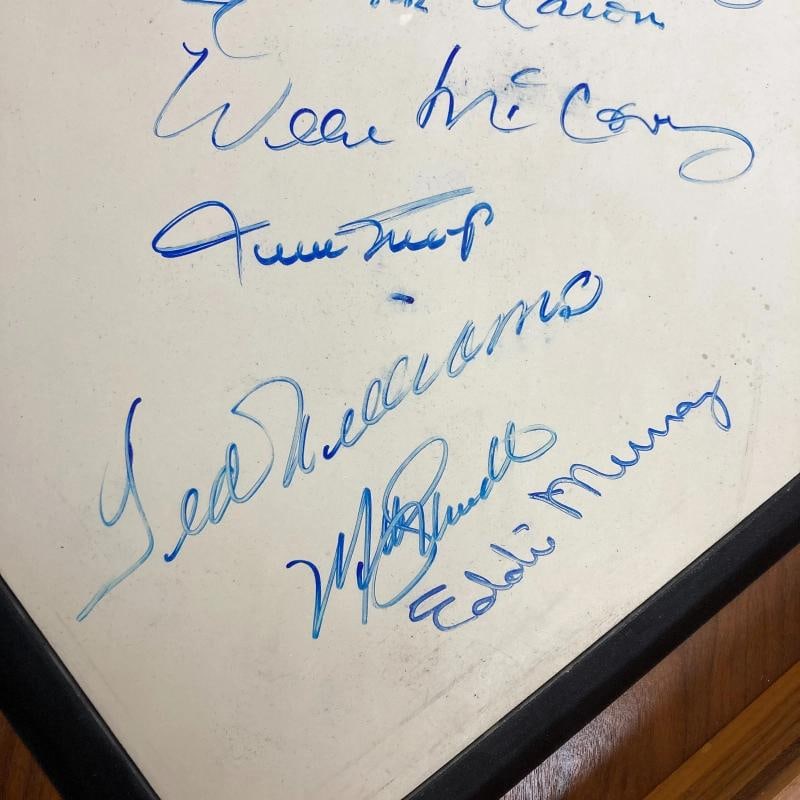 Aaron
Willie McCovey
Willie Mays
Ted Williams
Mike Schmidt
Eddie Murray